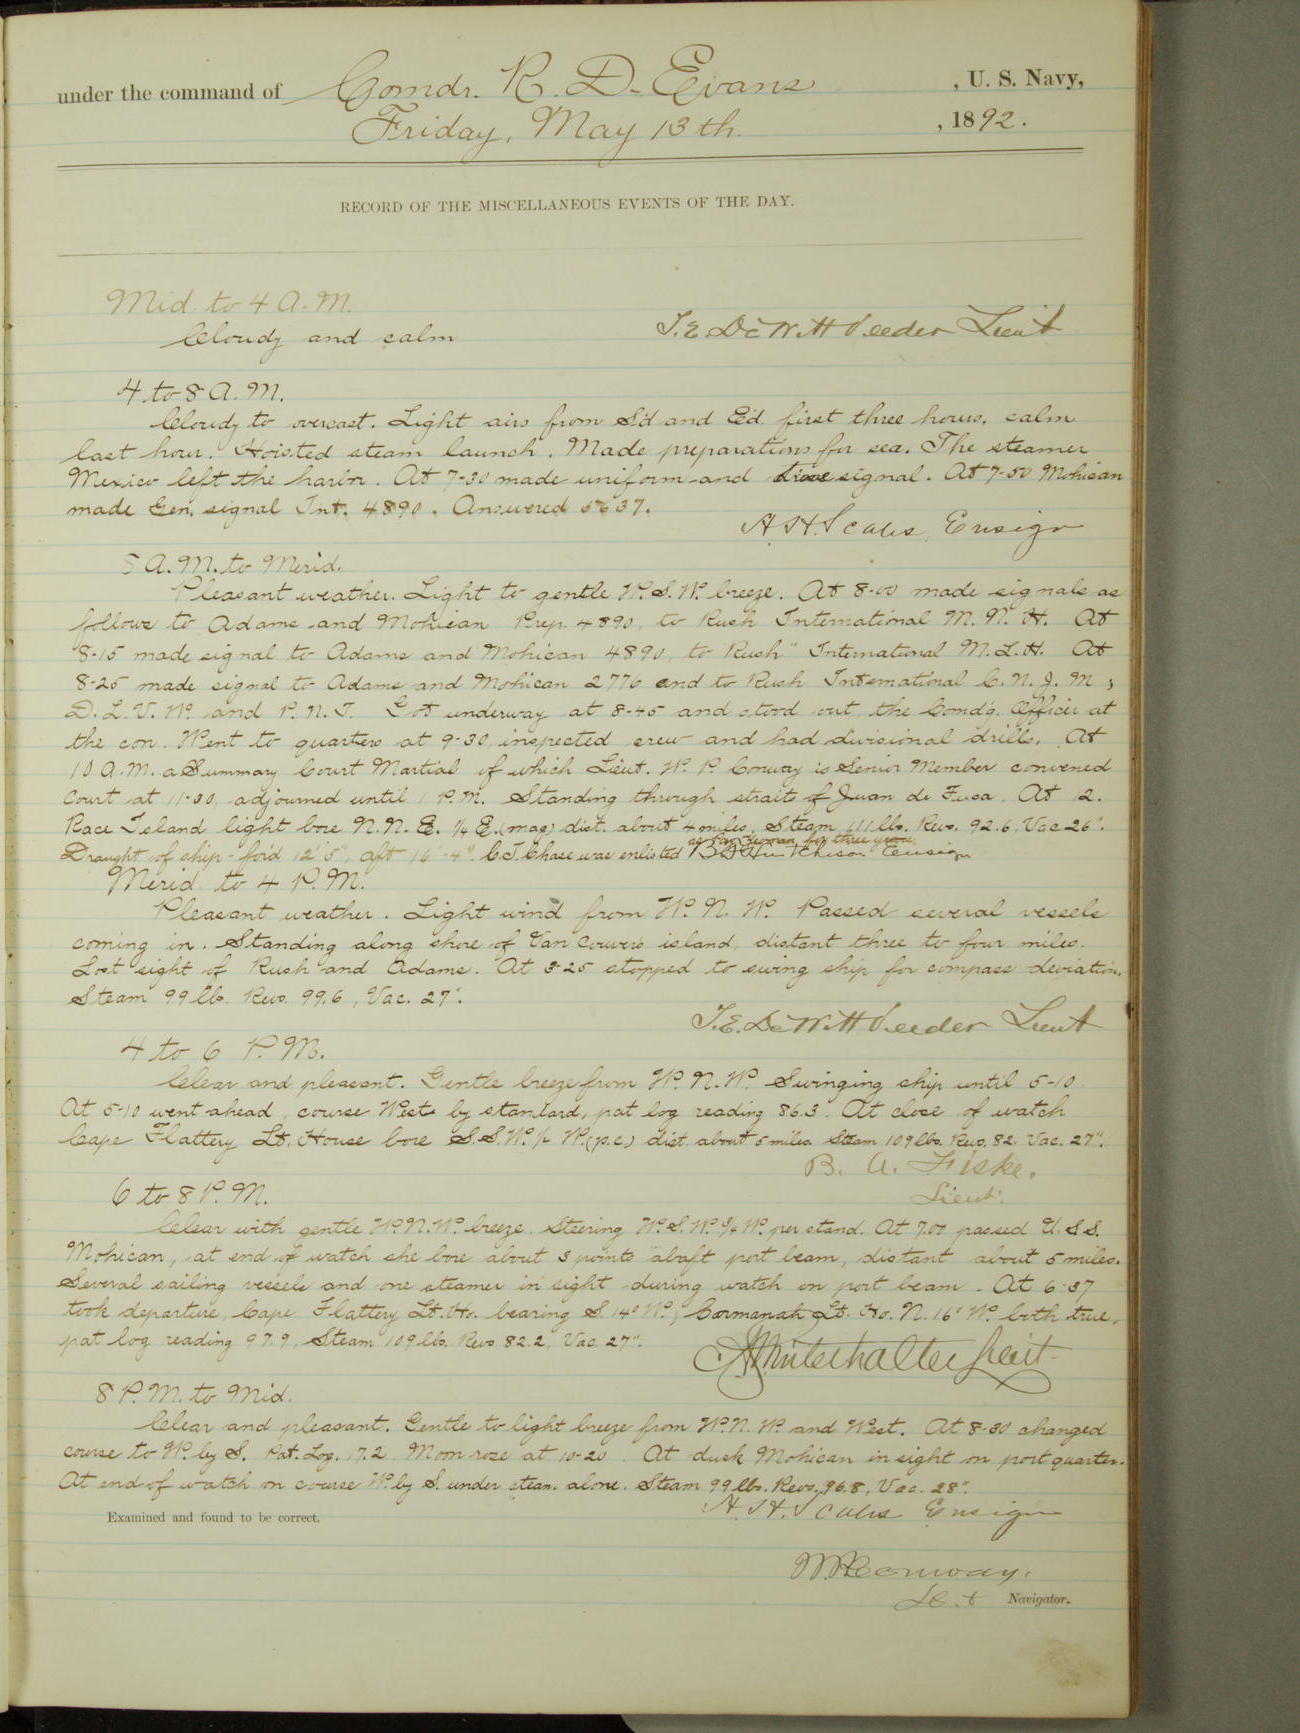 under the command of Comdr. R. D. Evans , U. S. Navy,
Friday, May 13th. , 1892.
RECORD OF THE MISCELLANEOUS EVENTS OF THE DAY.
Mid to 4 A.M.
Cloudy and calm
T. E. DeWitt Veeder Lieut
4 to 8 A.M.
Cloudy to overcast. Light airs from S'd and E'd first three hours, calm
last hour. Hoisted steam launch. Made preparations for sea. The steamer
Mexico left the harbor. At 7-30 made uniform and signal. At 7-50 Mohican
made Gen. signal Int. 4890. Answered 5637.
A. H. Scales Ensign
8 A.M. to Merid.
Pleasant weather. Light to gentle W.S.W. breeze. At 8-00 made signals as
follows to Adams and Mohican Prep. 4890, to Rush International M. N. H. At
8-15 made signal to Adams and Mohican 4890, to Rush" International M. L. H. At
8-25 made signal to Adams and Mohican 2776 and to Rush International C. N. J. M;
D. L. V. W. and P. N. T. Got underway at 8-45 and stood out, the Comd'g. Officer at
the con. Went to quarters at 9-30, inspected crew and had divisional drills. At
10 A.M. a Summary Court Martial of which Lieut. W. P. Conway is Senior Member convened
Court at 11-30, adjourned until 1 P.M. Standing through straits of Juan de Fuca. At 12.
Race Island light bore N.N.E. ¼ E. (mag) dist. about 4 miles. Steam 111 lbs. Revs. 92.6, Vac 26".
as for three years.
Draught of ship - for'd 12' 5", aft 16'-4". C. J. Chase was enlisted B. F. Hutchison Ensign
Merid to 4 P.M.
Pleasant weather. Light wind from W. N. W. Passed several vessels
coming in. Standing along shore of Van couvers island, distant three to four miles.
Lost sight of Rush and Adams. At 3-25 stopped to swing ship for compass deviation.
Steam 99 lb. Revs. 99.6, Vac. 27".
T. E. DeWitt Veeder Lieut
4 to 6 P.M.
Clear and pleasant. Gentle breeze from W. N. W. Swinging ship until 5-10
At 5-10 went ahead, course West by standard, pat log reading 86.3. At close of watch
Cape Flattery Lt. House bore S.S.W. ½ W. (p.c.) dist. about 5 miles. Steam 109 lbs. Revs. 82. Vac. 27".
B. A. Fiske.
Lieut.
6 to 8 P.M.
Clear with gentle W.N.W. breeze. Steering W.S.W. ¾ W. per stand. At 7.00 passed U.S.S.
Mohican, at end of watch she bore about 3 points abaft port beam, distant about 5 miles.
Several sailing vessels and one steamer in sight during watch on port beam. At 6-37
took departure, Cape Flattery Lt. Ho. bearing S. 14° W., Carmanah Lt. Ho. N. 16° W. both true,
pat log reading 97.9, Steam 109 lbs. Revs 82.2, Vac. 27".
A. Winterhalter Lieut
8 P.M. to Mid.
Clear and pleasant. Gentle to light breeze from W.N.W. and West. At 8-30 changed
course to W. by S. Pat. Log. 17.2. Moon rose at 10-20. At dusk Mohican in sight on port quarter.
At end of watch on course W. by S. under steam alone. Steam 99 lbs. Revs. 96.8, Vac. 28".
A. H. Scales Ensign
Examined and found to be correct.
W. P. Conway,
Lieut Navigator.